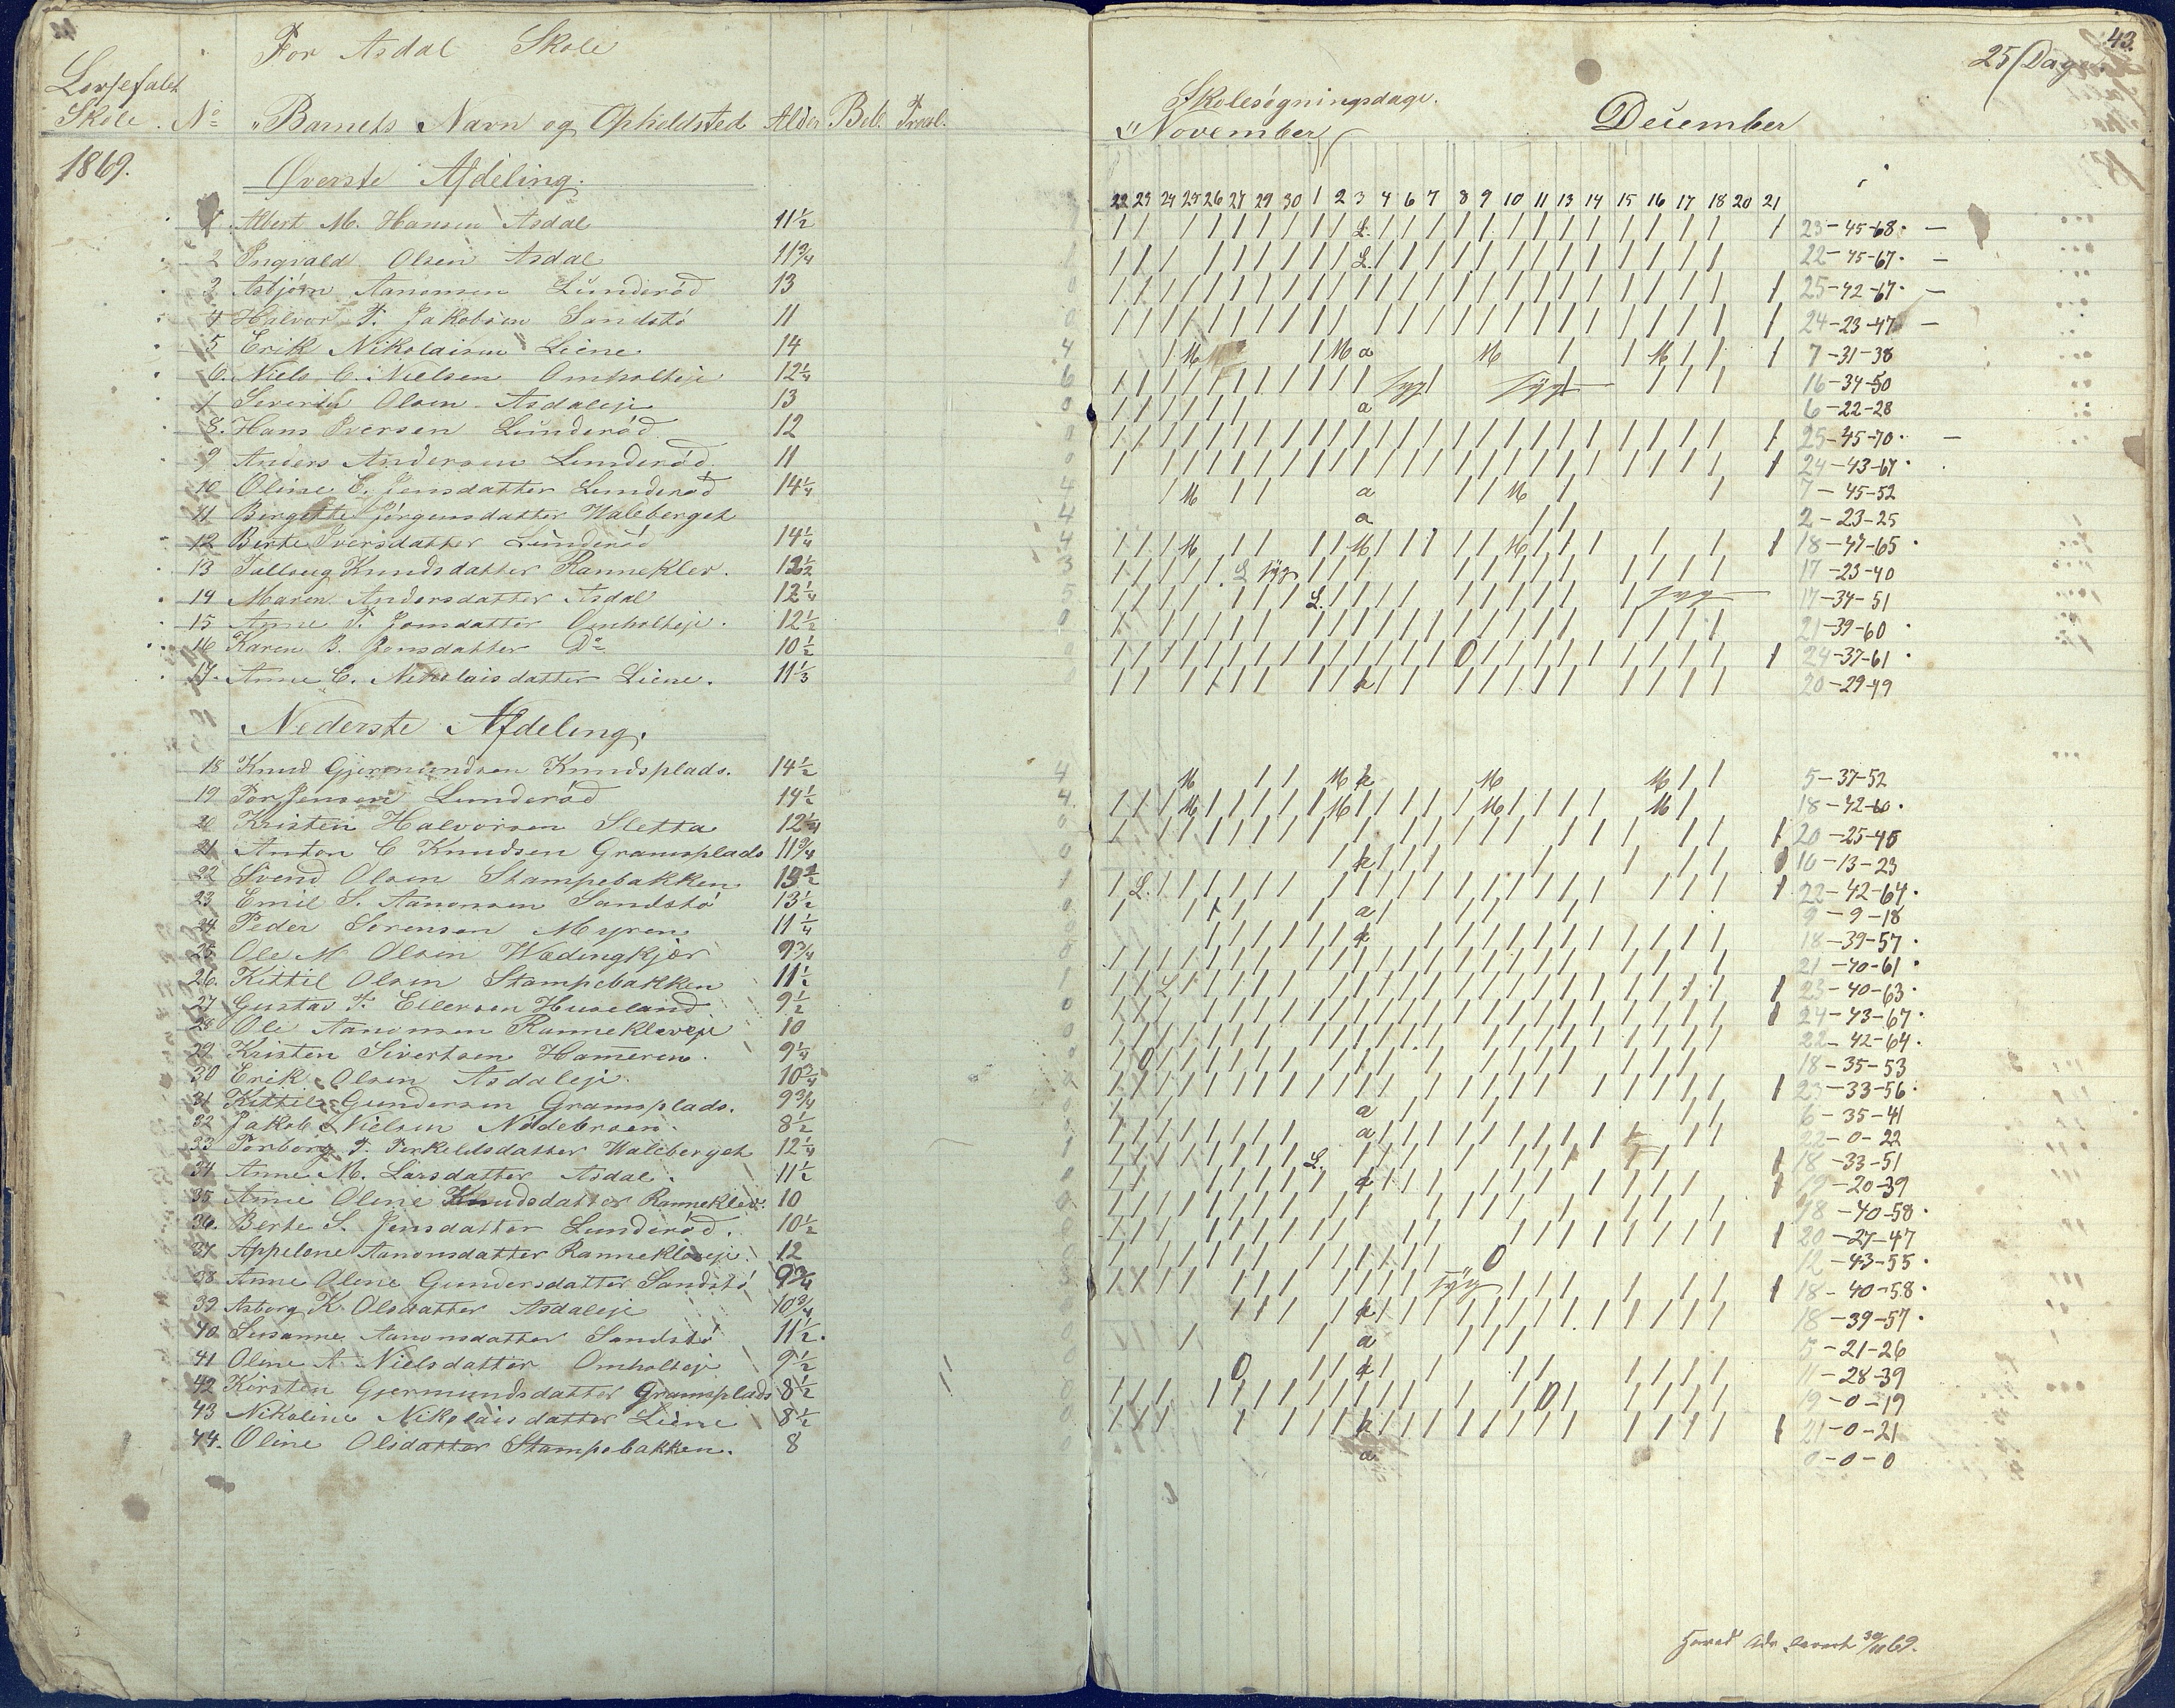 For Asdal Skole
Lovsefalet
Skole. No "Barnets Navn og Opholdsted Alder Beb. Proal.
1869.
Øverste Afdeling.
1 Albert M. Hansen Asdal 11½
2 Ingvald Olsen Asdal 11¾
3 Asbjørn Aanonsen Lunderød 13
4 Halvor T. Jakobsen Sandstø 11
5 Erik Nikolaisen Liene 14
6. Niels C. Nielsen Omholteje 12¼
7 Severin Olsen Asdaleje 13
8. Hans Iversen Lunderød 12
9 Anders Andersen Lunderød 11
10 Oline E. Jensdatter Lunderød 14¼
11 Birgitte Jørgensdatter Waleberget
12 Berte Iversdatter Lunderød 14¼
13 Tallaug Knudsdatter Ranneklev. 12½
14 Maren Andersdatter Asdal 12¼
15 Anne T. Jonsdatter Omholteje. 12½
16 Karen B. Jonsdatter Do 10½
17. Anne C. Nikolaisdatter Liene. 11⅓
Nederste Afdeling.
18 Knud Gjermundsen Knudsplads. 14½
19 Tor Jensen Lunderød 14½
20 Kristen Halvorsen Sletta 12¼
21 Anton C Knudsen Gramsplads 11¾
22 Svend Olsen Stampebakken 13½
23 Emil S. Aanonsen Sandstø 13½
24 Peder Sørensen Myren 11¼
25 Ole M Olsen Wædingkjær 9¾
26. Kittil Olsen Stampebakken 11½
27 Gustav F. Ellersen Huseland 9½
28 Ole Aanonsen Rannekleveje 10
29 Kristen Sivertsen Hameren. 9¼
30 Erik Olsen Asdaleje. 10¾
31 Kittil Gundersen Gramsplads. 9¾
32 Jakob Nielsen Nødebroen. 8½
33 Torborg T. Terkeldsdatter Waleberget 12¼
34 Anne M. Larsdatter Asdal. 11½
35 Anne Olene Knudsdatter Ranneklev. 10
36. Berte S. Jensdatter Lunderød. 10½
37 Appelone Aanonsdatter Ranneklveje. 12
38 Anne Olene Gundersdatter Sandstø 9¾
39 Asborg K. Olsdatter Asdaleje 10¾
40 Susanne Aanonsdatter Sandstø 11½.
41 Oline A Nielsdatter Omholteje 9½
42 Kirsten Gjermundsdatter Gramsplads 8½
43 Nikoline Nikolaisdatter Liene 8½
44. Oline Olsdatter Stampebakken. 8
43.
25 Dage.
Skolesøgningsdage.
"November December
22 23 24 25 26 27 29 30 1 2 3 4 6 7 8 9 10 11 13 14 15 16 17 18 20 21
L. 23-45-68. -
L. 22-45-67. -
25-42-67. -
24-23-47 -
M M a M M 7-31-38
syg syg 16-34-50
a 6-22-28
25-45-70. -
24-43-67.
M a M 7-45-52
a 2-23-25
M M M 18-47-65.
L syg 17-23-40
L. syg 17-34-51
21-39-60.
0 24-37-61.
k 20-29-49
M M k M M 5-37-52
M M M M 18-42-60.
20-25-45
k 10-13-23
L. 22-42-64.
a 9-9-18
k 18-39-57.
21-40-61.
23-40-63.
24-43-67.
22-42-64.
0 18-35-53
23-33-56.
a 6-35-41
a 22-0-22
L. 18-33-51
k 19-20-39
18-40-58.
20-27-47
0 12-43-55.
syg 18-40-58.
k 18-39-57.
a 5-21-26
0 k 11-28-39
0 19-0-19
k 21-0-21
a 0-0-0